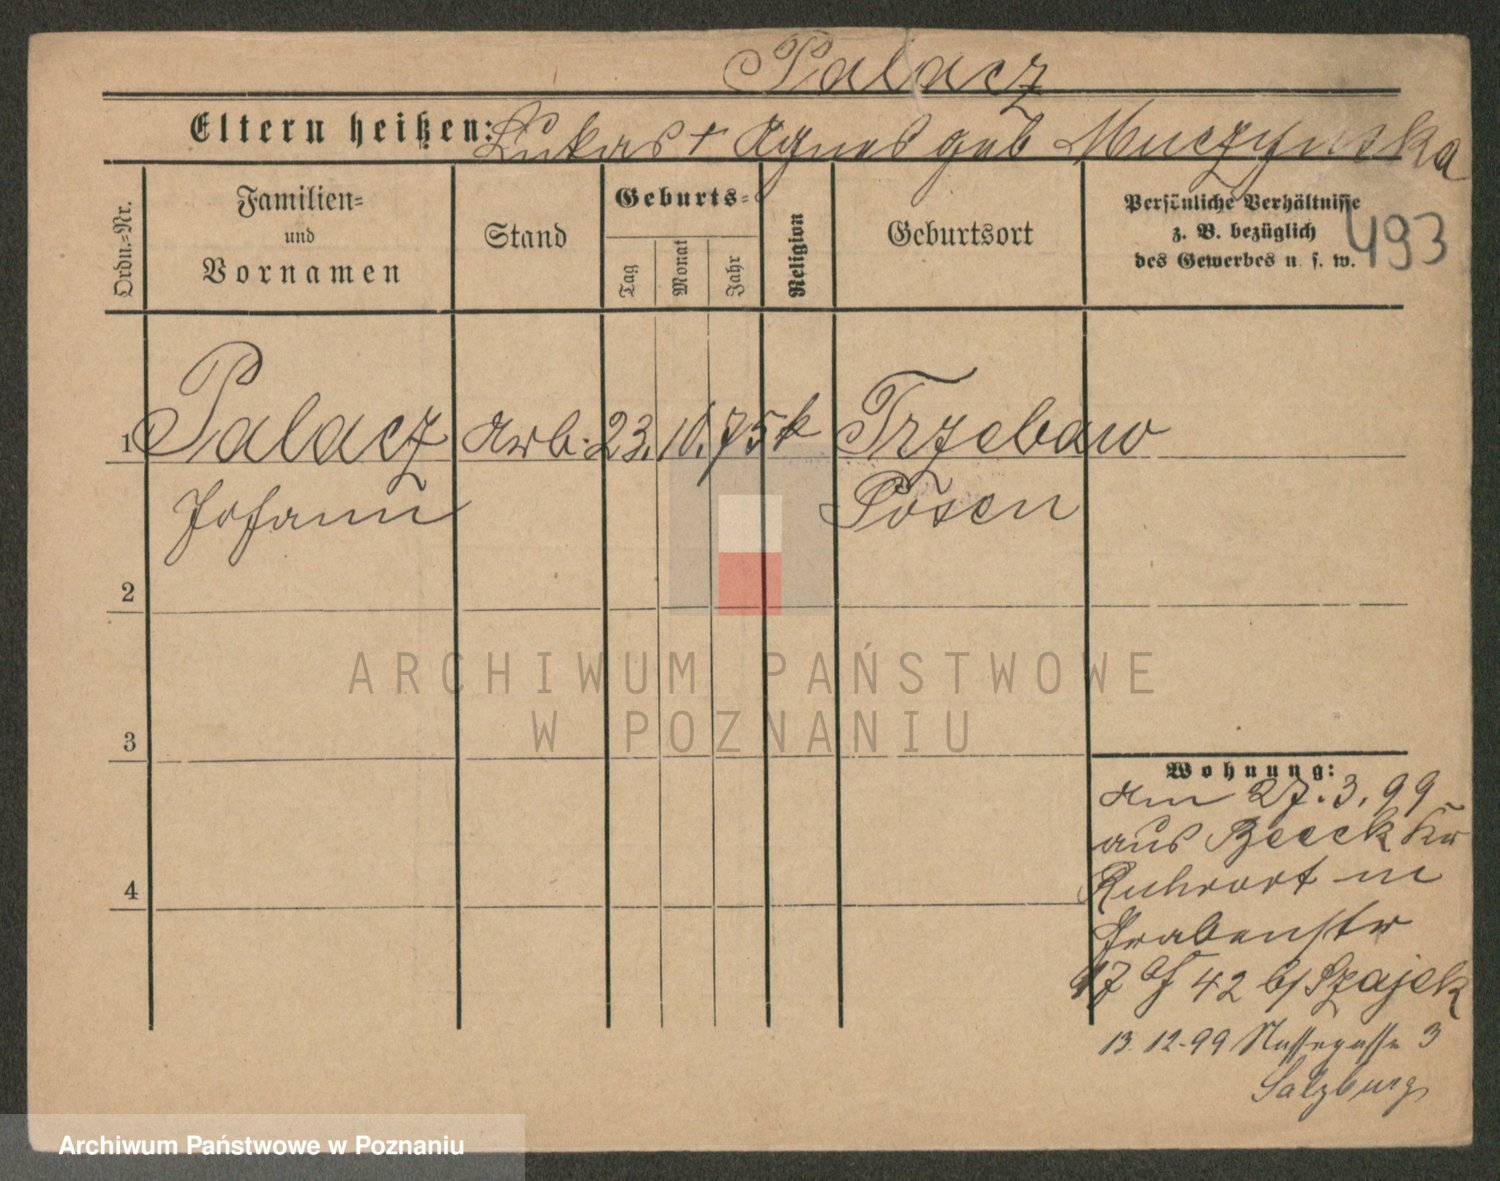 Palacz
Eltern heißen: Lukas + Agnes geb Muczynska
Ordn.=Nr.
Familien=
und
Vornamen
Stand
Geburts=
Tag
Monat
Jahr
Religion
Geburtsort
Persönliche Verhältnisse
z. B. bezüglich
des Gewerbes u. s. w.
493
1 Palacz Arb. 23. 10. 75 k Trzebaw
Johann Posen
2
3
4
Wohnung:
Am 27.3.99
aus Beeck Kr
Ruhrort in
Grabenstr
17 42 b/ Szajek
13.12.99 Nassegasse 3
Salzburg
ARCHIWUM PAŃSTWOWE
W POZNANIU
Archiwum Państwowe w Poznaniu